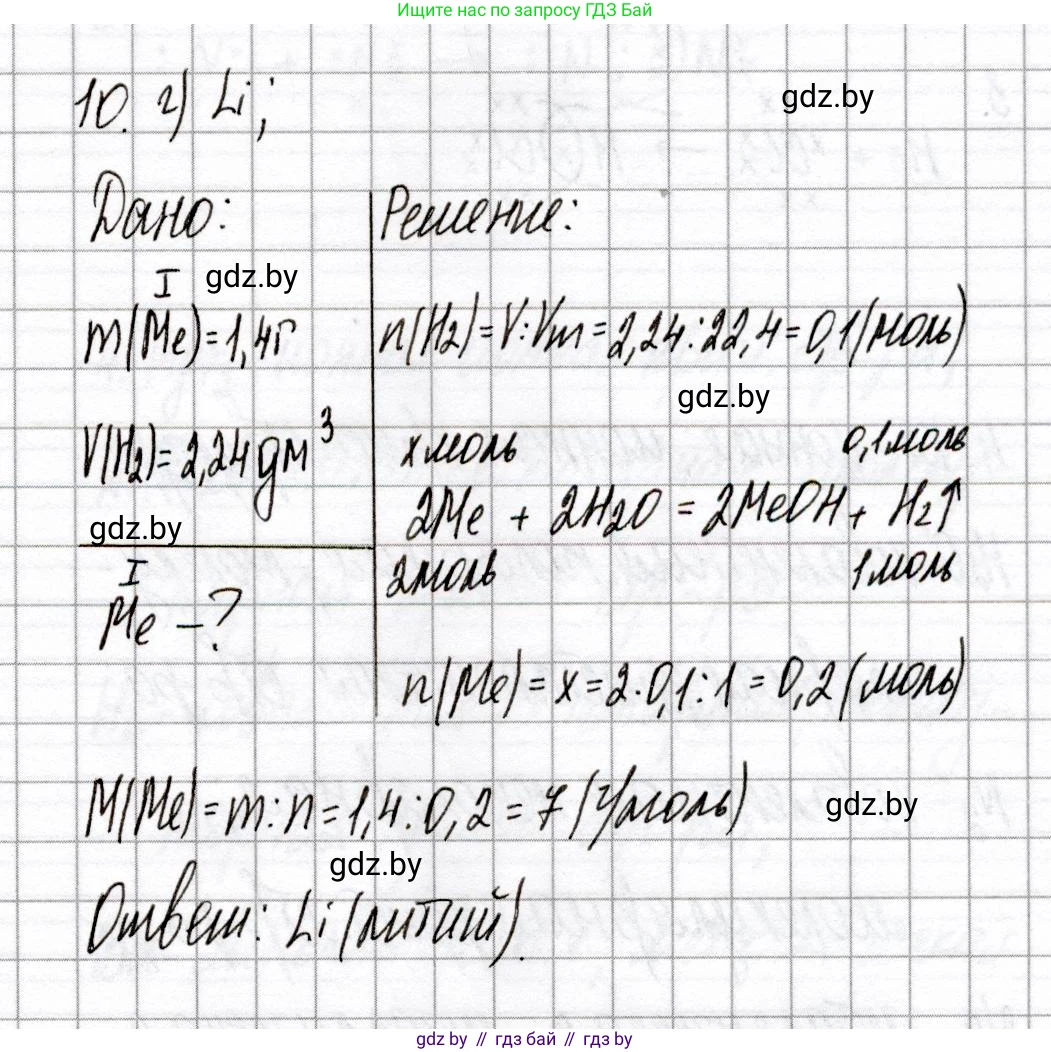 Ищите нас по запросу ГДЗ Бай
10. г) Li;
gdz.by
Дано:
I
gdz.by
m(Me)=1,4г
V(H₂)=2,24дм³
gdz.by
I
Me –?
Решение:
n(H₂)=V:Vm=2,24:22,4=0,1(моль)
gdz.by
x моль 0,1моль
2Me + 2H₂O = 2MeOH + H₂↑
2моль 1моль
n(Me)=x=2·0,1:1=0,2(моль)
M(Me)=m:n=1,4:0,2=7(г/моль)
gdz.by
gdz.by
Ответ: Li(литий).
gdz.by // гдз бай // gdz.by